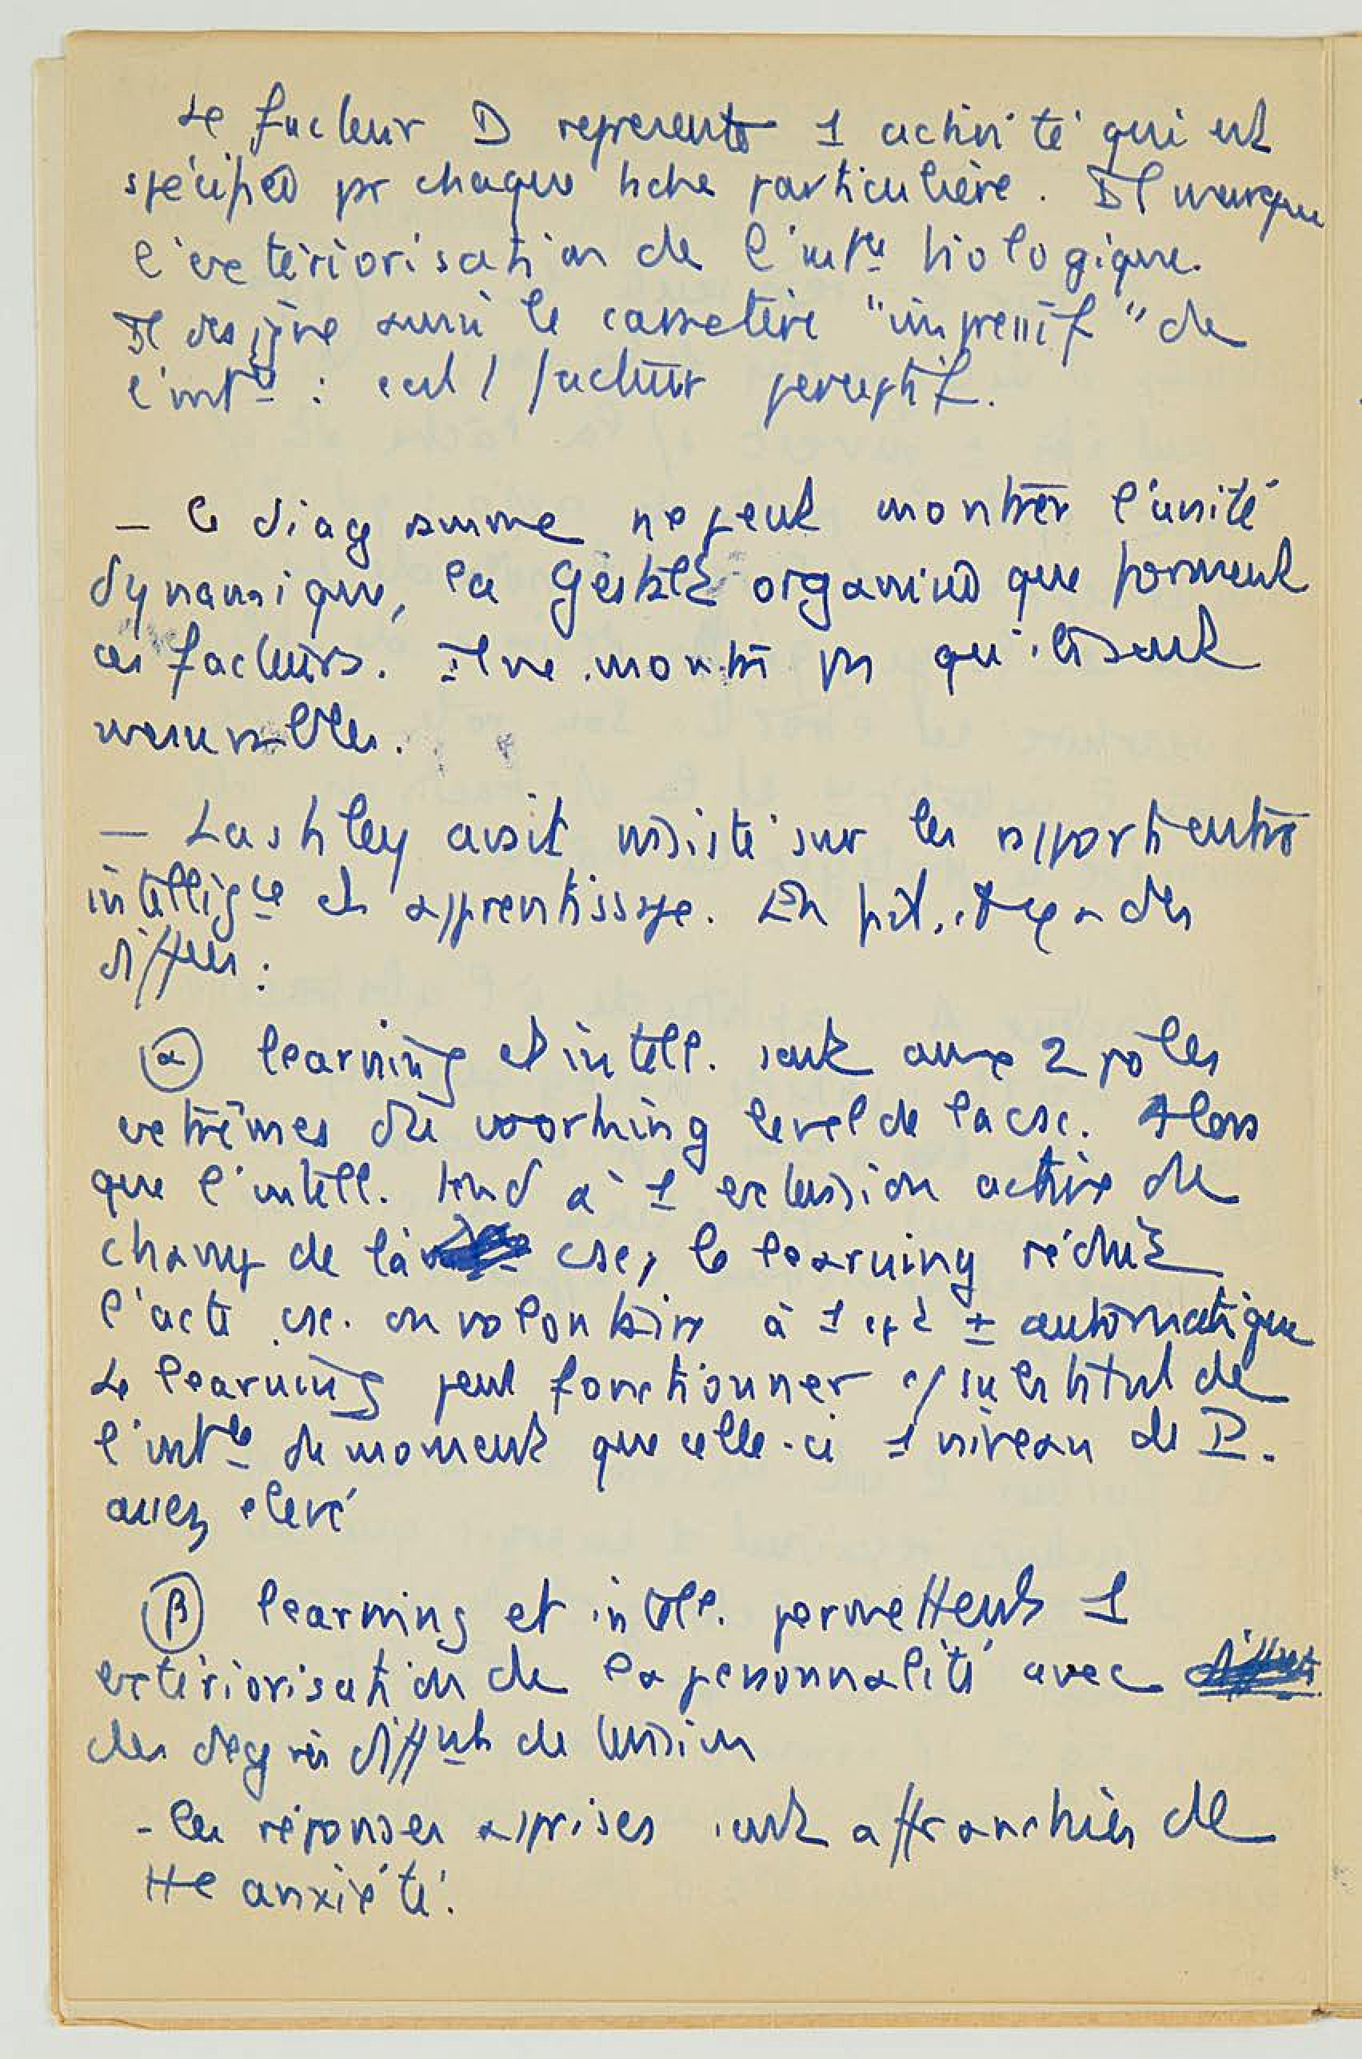 Le facteur D represente 1 activité qui est
spécifiée pr chaque tâche particulière. Il marque
l'extériorisation de l'intce biologique.
Il désigne aussi le caractère "impressif" de
l'intce : c'est 1 facteur perceptif.
— Ce diagramme ne peut montrer l'unité
dynamique, la Gestalt organisée que forment
ces facteurs. Il ne montre pas qu'ils sont
mesurables.
— Lashley avait insisté sur les rapports entre
intelligce et apprentissage. En fait, il y a des
difffces :
(α) learning et intell. sont aux 2 pôles
extrêmes du working level de la csc. Alors
que l'intell. tend à 1 extension active du
champ de la csc, le learning réduit
l'acte csc. ou volontaire à 1 act ± automatique
Le learning peut fonctionner c/ substitut de
l'intce du moment que celle-ci 1 niveau de P.
assez élevé
(β) learning et intell. permettent 1
extériorisation de la personnalité avec
des degrés difffnts de tension
- les réponses apprises sont affranchies de
tte anxiété.